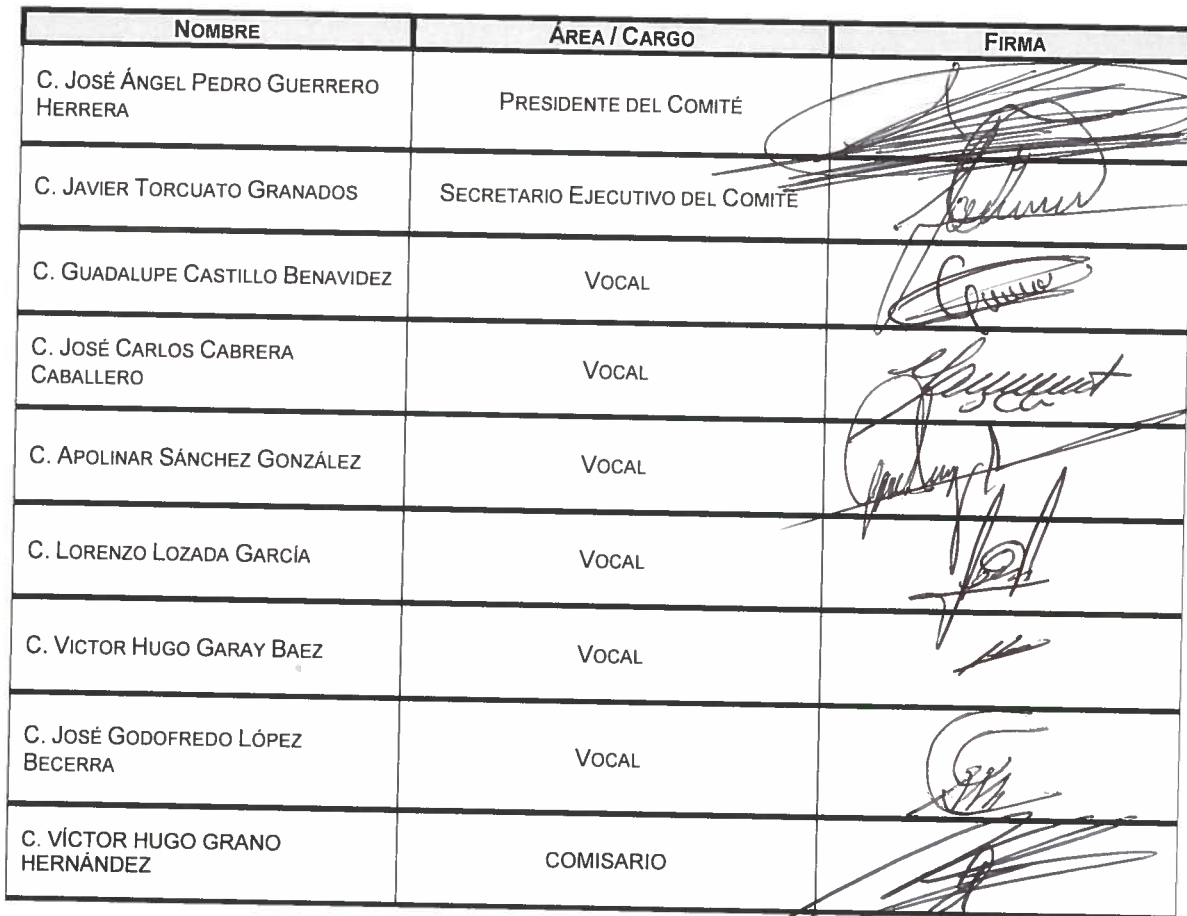 NOMBRE ÁREA / CARGO FIRMA
C. JOSÉ ÁNGEL PEDRO GUERRERO
HERRERA
PRESIDENTE DEL COMITÉ
C. JAVIER TORCUATO GRANADOS
SECRETARIO EJECUTIVO DEL COMITÉ
C. GUADALUPE CASTILLO BENAVIDEZ
VOCAL
C. JOSÉ CARLOS CABRERA
CABALLERO
VOCAL
C. APOLINAR SÁNCHEZ GONZÁLEZ
VOCAL
C. LORENZO LOZADA GARCÍA
VOCAL
C. VICTOR HUGO GARAY BAEZ
VOCAL
C. JOSÉ GODOFREDO LÓPEZ
BECERRA
VOCAL
C. VÍCTOR HUGO GRANO
HERNÁNDEZ
COMISARIO